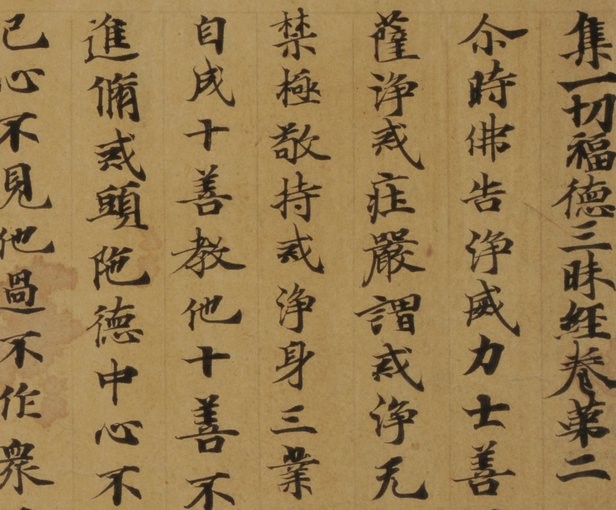 集一切福德三昧經卷第二
尒時佛告淨威力士善
薩淨戒庄嚴謂戒淨无
禁極敬持戒淨身三業
自成十善教他十善不
進脩戒頭陁德中心不
己心不見他過不作衆